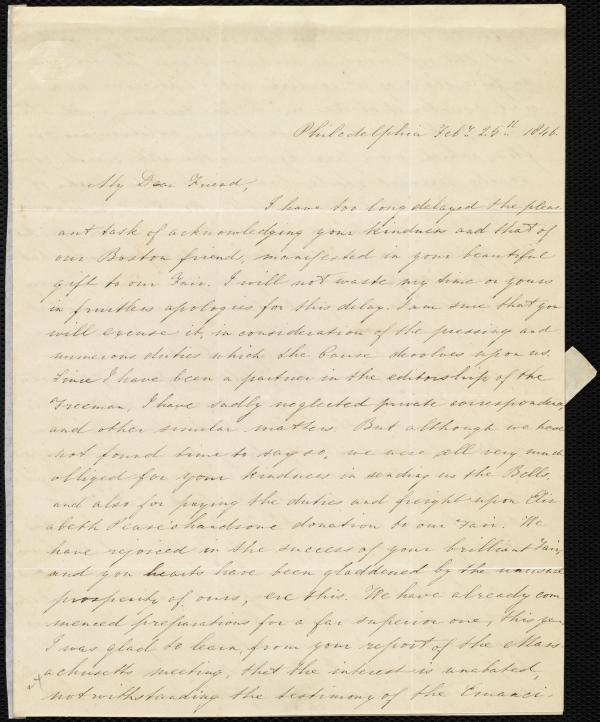 Philadelphia Feb.y 25.th 1846.
My Dear Friend,
I have too long delayed the pleas
ant task of acknowledging your kindness and that of
our Boston friend, manifested in your beautiful
gift to our Fair. I will not waste my time or yours
in fruitless apologies for this delay. I am sure that you
will excuse it, in consideration of the pressing and
numerous duties which the Cause devolves upon us.
Since I have been a partner in the editorship of the
Freeman, I have sadly neglected private correspondence,
and other similar matters. But although we have
not found time to say so, we were all very much
obliged for your kindness in sending us the Bells,
and also for paying the duties and freight upon Eliz
abeth Pease's handsome donation to our Fair. We
have rejoiced in the success of your brilliant Fair,
and you hearts have been gladdened by the unusual
prosperity of ours, ere this. We have already com
menced preparations for a far superior one, this year.
I was glad to learn, from your report of the Mass
achusetts meeting, that the interest is unabated,
notwithstanding the testimony of the Emanci-